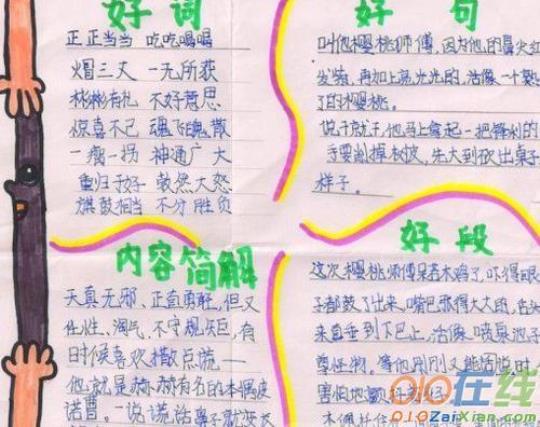 好词
正正当当 吃吃喝喝
火冒三丈 一无所获
彬彬有礼 不好意思
惊喜不已 魂飞魄散
一瘸一拐 神通广大
重归于好 勃然大怒
旗鼓相当 不分胜负
好句
叫他樱桃师傅,因为他的鼻尖红
发紫,再加上亮光光的,活像一个熟
了的樱桃。
说干就干,他马上拿起一把锋利的
手要削掉树皮,先大致砍出桌子
样子。
内容简解
天真无邪、正直勇敢,但又
任性、淘气、不守规矩,有
时候喜欢撒点谎——
他就是赫赫有名的木偶皮
诺曹。一说谎话鼻子就变长
好段
这次樱桃师傅呆若木鸡了,吓得眼
子都鼓了出来,嘴巴张得大大的,舌头
来直垂到下巴上,活像喷泉池子
等他刚刚又能说话时
害怕地
010在线
010ZaiXian.com